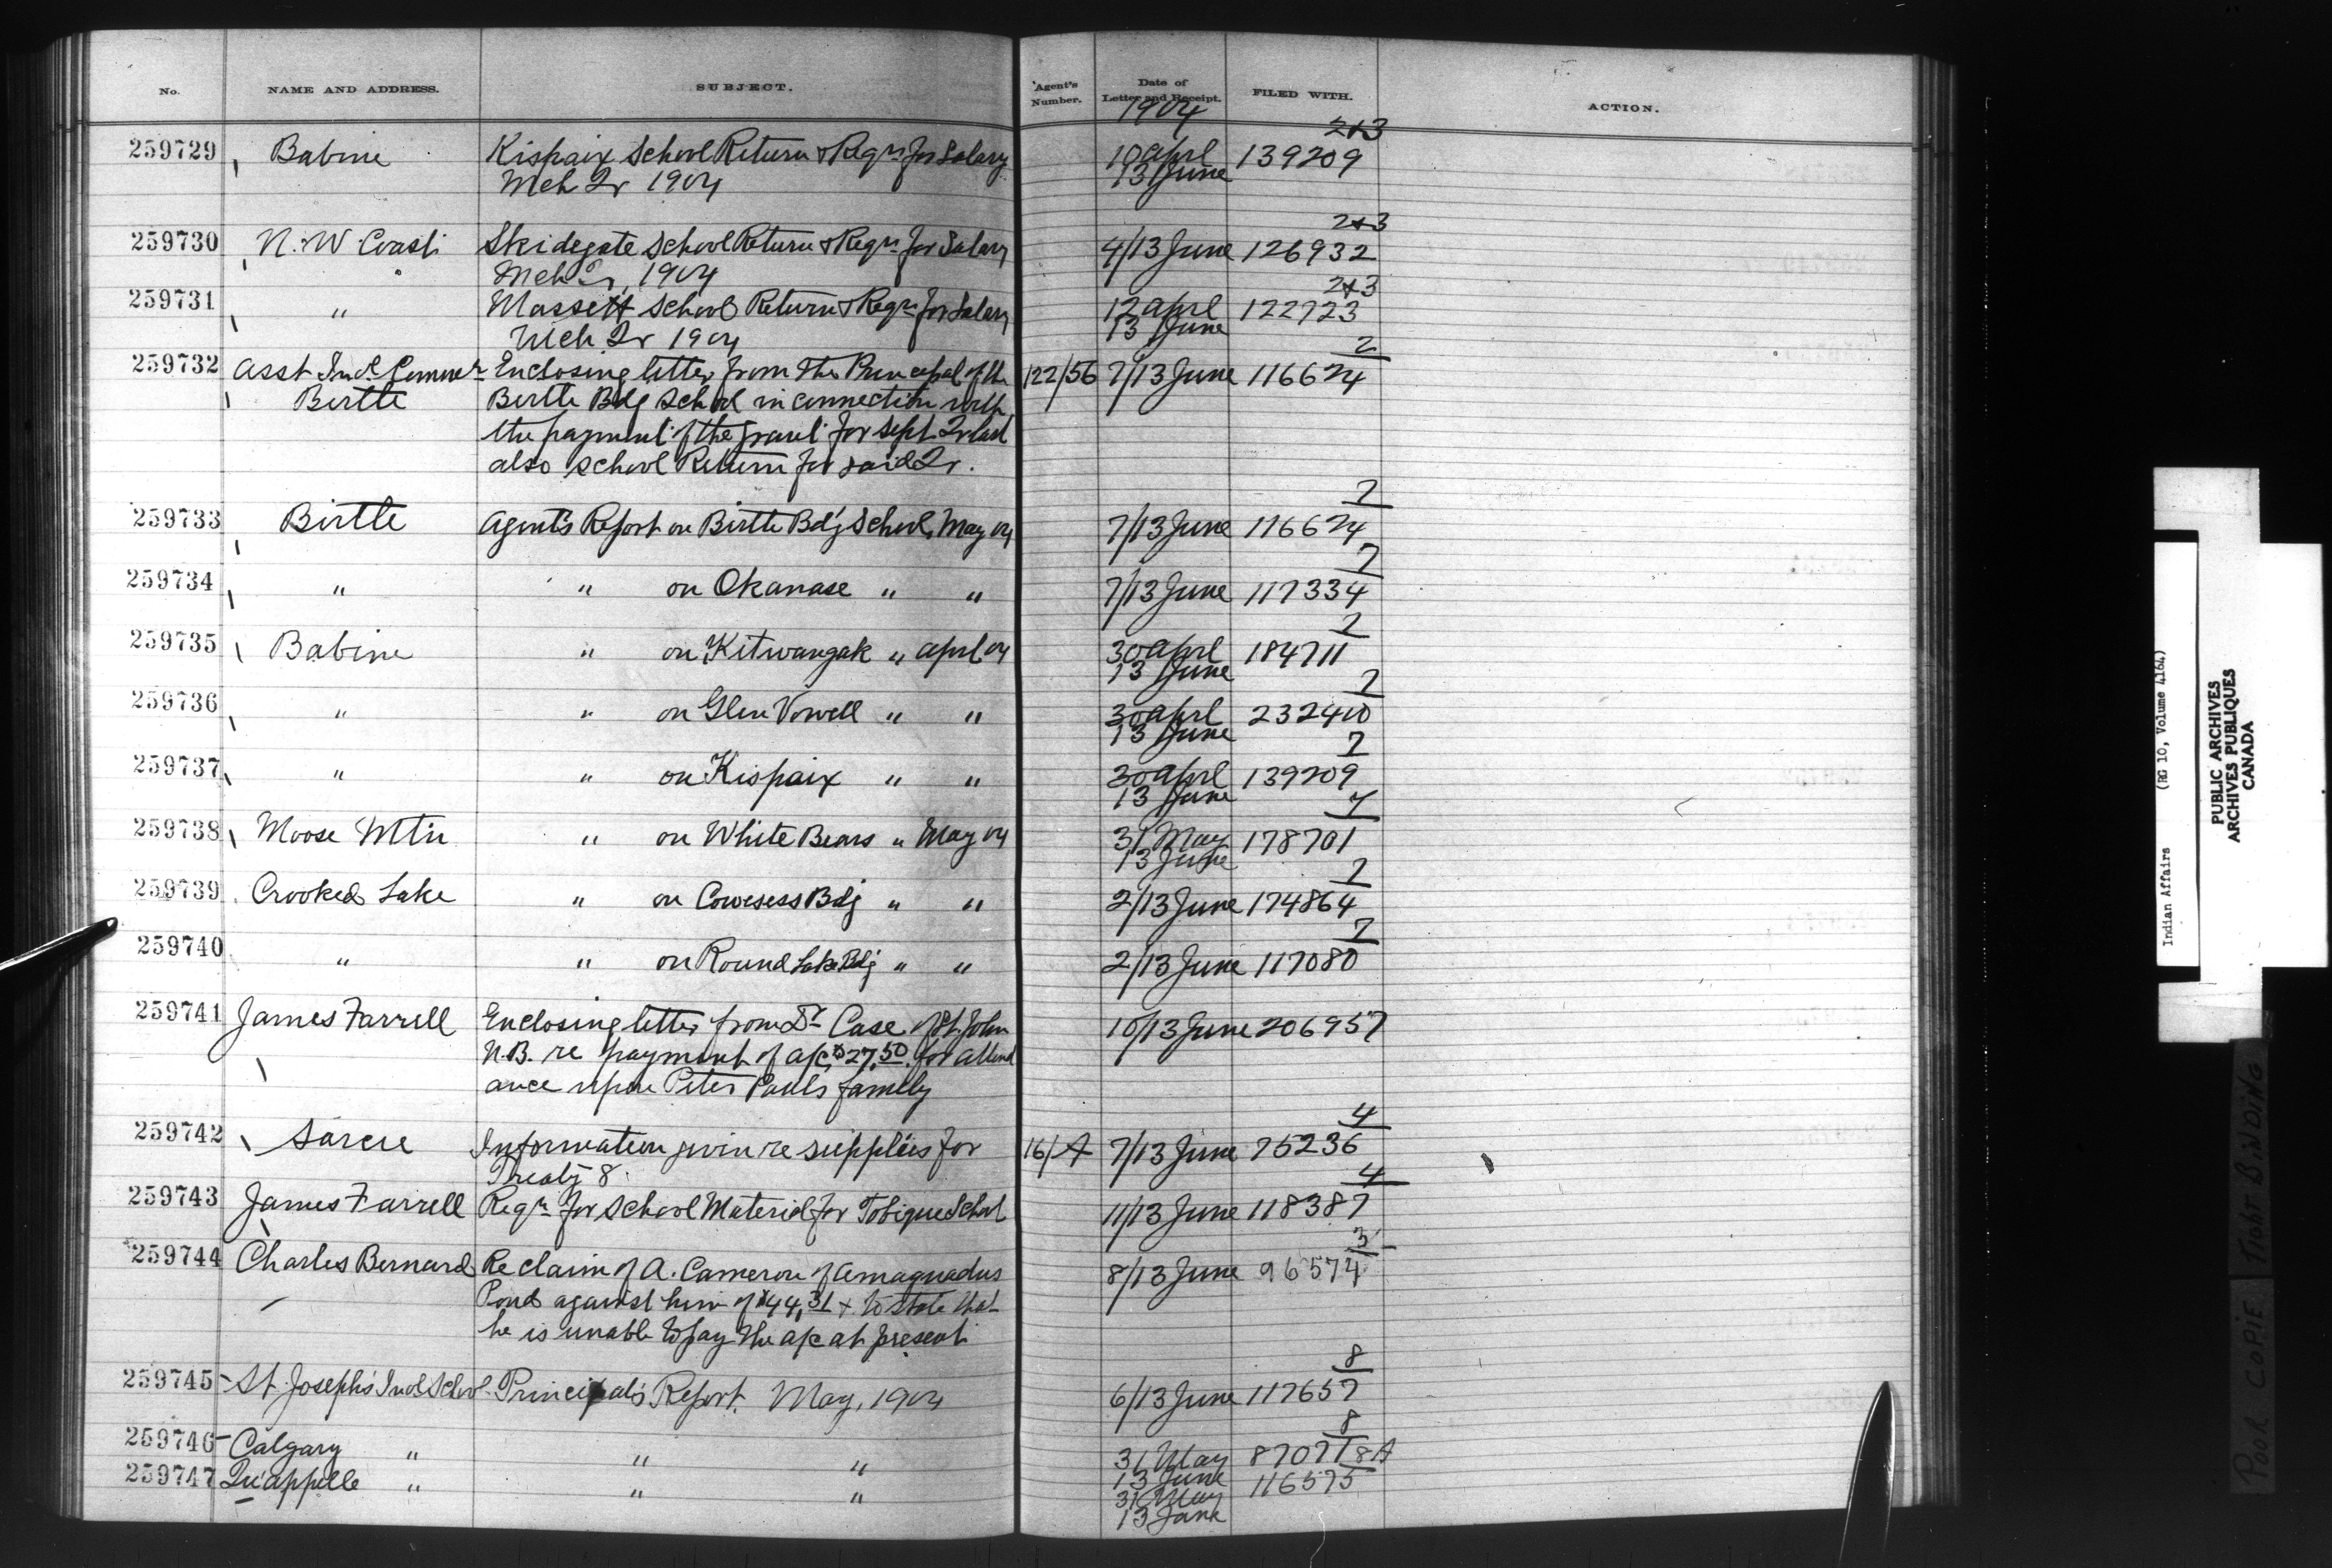 No. NAME AND ADDRESS. SUBJECT. Agent's Number. Date of Letter and Receipt. FILED WITH. ACTION.
1904
2+3
259729 Babine Kispaix School Return & Reqn for Salary 10 Aprl 139209
Mch Qr 1904 13 June
2+3
259730 N. W Coast Skidegate School Return & Reqn for Salary 4/13 June 126932
Mch Qr 1904
2+3
259731 " Massett School Return & Reqn for Salary 12 Aprl 122723
Mch Qr 1904 13 June
2
259732 Asst Ind. Commr Enclosing letter from the Principal of the 122/56 7/13 June 116624
Birtle Birtle Bdg School in connection with
the payment of the grant for Sept. Qr last
also School Return for said Qr.
7
259733 Birtle Agent's Report on Birtle Bdg School, May 04 7/13 June 116624
7
259734 " " on Okanase " " 7/13 June 117334
7
259735 Babine " on Kitwangak " Aprl 04 30 Aprl 184711
13 June
7
259736 " " on Glen Vowell " " 30 Aprl 232410
13 June
7
259737 " " on Kispaix " " 30 Aprl 139209
13 June
7
259738 Moose Mtn " on White Bears " May 04 31 May 178701
13 June
7
259739 Crooked Lake " on Cowesess Bdg " " 2/13 June 174864
7
259740 " " on Round Lake Bdg " " 2/13 June 117080
259741 James Farrell Enclosing letter from Dr Case of St. John 10/13 June 206957
N.B. re payment of a/c $27.50 for attend
ance upon Peter Pauls family
4
259742 Sarcee Information given re supplies for 16/A 7/13 June 75236
Treaty 8.
4
259743 James Farrell Reqn for School Material for Tobique School 11/13 June 118387
3
259744 Charles Bernard Re claim of A. Cameron of Amaguadus 8/13 June 96574
Pond against him of $44.31 & to state that
he is unable to pay the a/c at present
8
259745 St. Joseph's Ind School Principal's Report. May, 1904 6/13 June 117657
8
259746 Calgary " " " 31 May 87071
13 June 8A
259747 Qu'appelle " " " 31 May 116575
13 June
Indian Affairs (RG 10, Volume 4164)
PUBLIC ARCHIVES
ARCHIVES PUBLIQUES
CANADA
POOR COPIE TIGHT BINDING